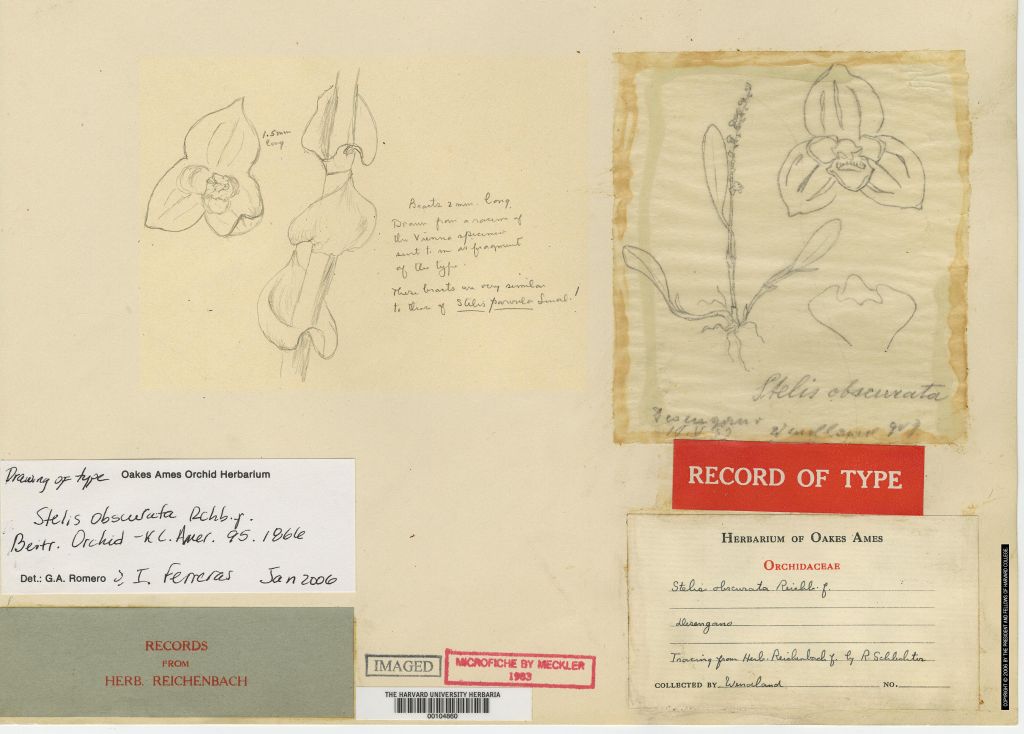 1.5mm
long
Bracts 2 mm. long.
Drawn from a raceme of
the Vienna specimen
sent to me as fragment
of the type.
These bracts are very similar
to those of Stelis parvula Lindl.!
Stelis obscurata
Desengano
Wendland
RECORD OF TYPE
Drawing of type Oakes Ames Orchid Herbarium
Stelis obscurata Rchb.f.
Beitr. Orchid-K C. Amer. 95. 1866
Det.: G.A. Romero & I. Ferreras Jan 2006
RECORDS
FROM
HERB. REICHENBACH
IMAGED
MICROFICHE BY MECKLER
1983
THE HARVARD UNIVERSITY HERBARIA
00104860
HERBARIUM OF OAKES AMES
ORCHIDACEAE
Stelis obscurata Reichb. f.
Desengano
Tracing from Herb. Reichenbach f. by R Schlechter
COLLECTED BY Wendland NO.
COPYRIGHT © 2006 BY THE PRESIDENT AND FELLOWS OF HARVARD COLLEGE